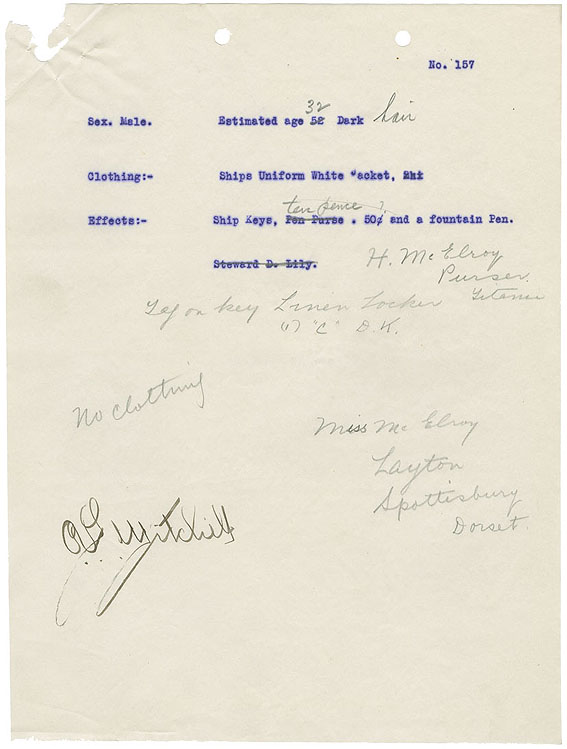 No. 157
32
Sex. Male. Estimated age 52 Dark hair
Clothing:- Ships Uniform White Jacket,
ten pence ?
Effects:- Ship Keys, Pen Purse . 50¢ and a fountain Pen.
Steward D. Lily. H. McElroy
Purser
Titanic
Tag on key Linen Locker
(1) "C" D.K.
No clothing
Miss McElroy
Layton
Spottisbury
Dorset.
Mitchell